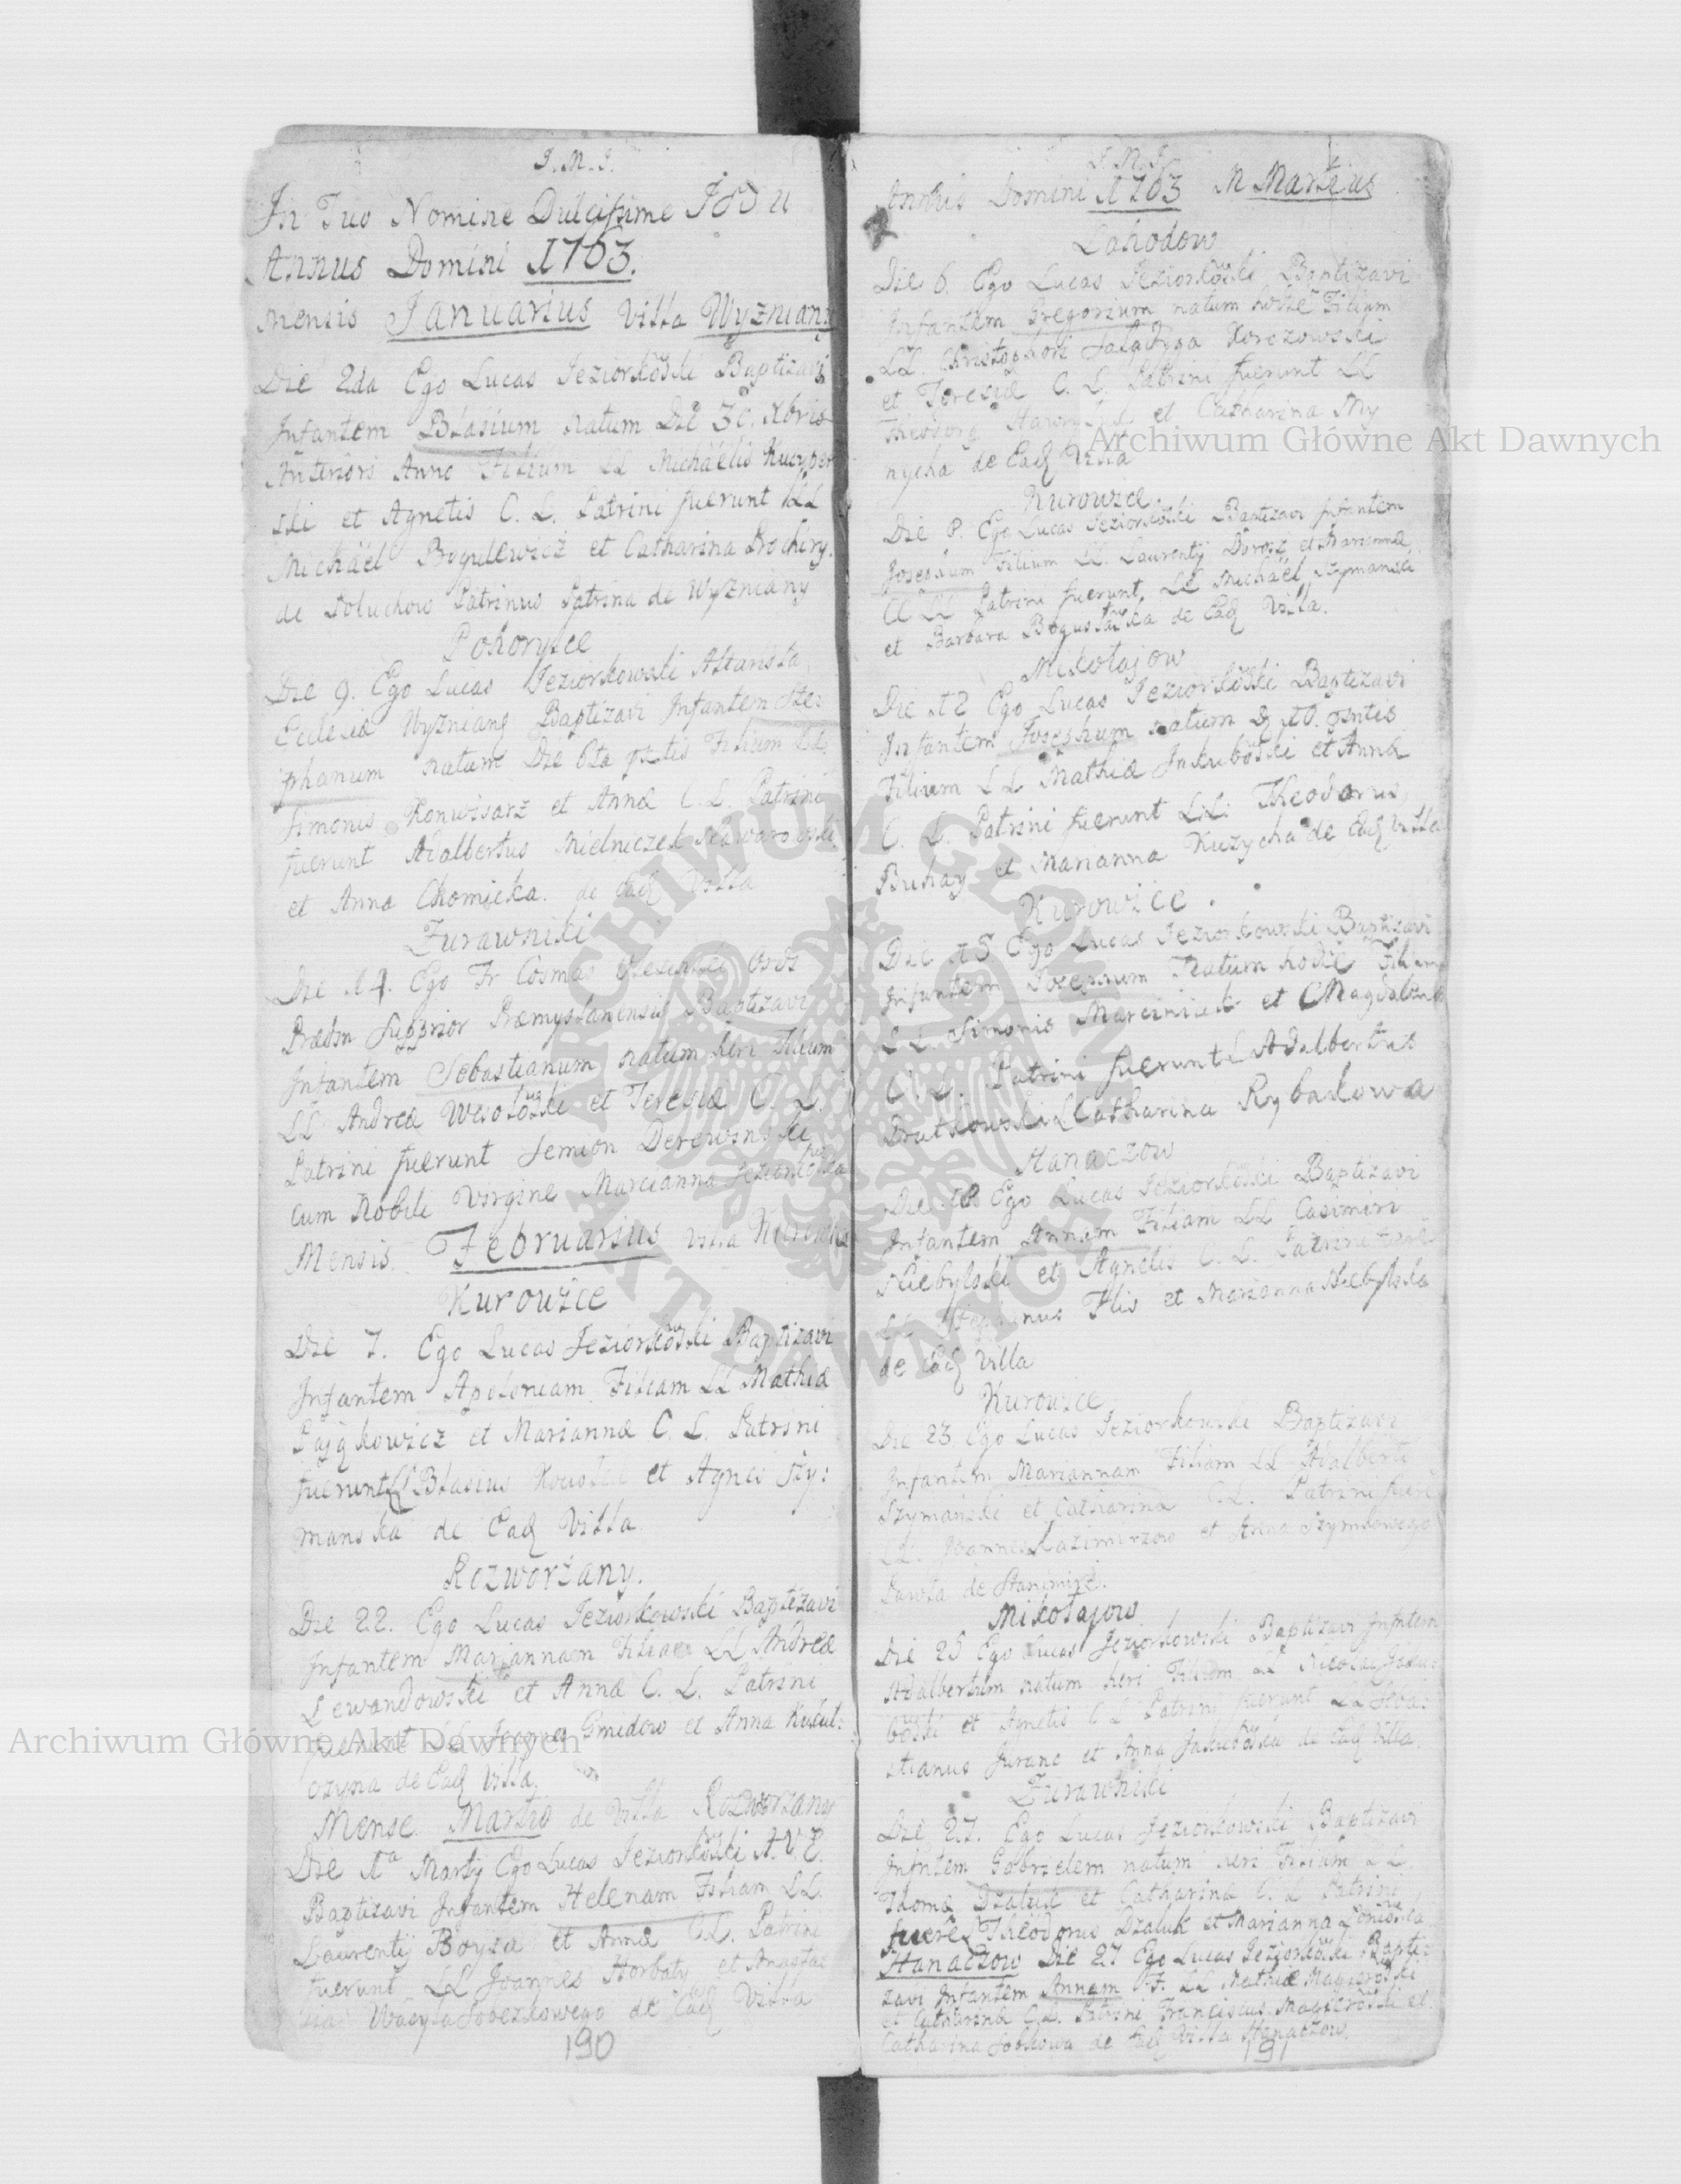 J. M. J.
In Tuo Nomine Dulcissime JESU
Annus Domini 1763.
Mensis Januarius Villa Wyzniany
Die 2da Ego Lucas Jeziorkowski Baptizavi
Infantem Blasium natum Die 30. Xbris
Anterioris Anno Filium LL Michaëlis
ski et Agnetis C. L. Patrini fuerunt LL
Michaël Bogulewicz et Catharina
de Soluchow Patrinus Patrina de Wyzniany
Pohorylce
Die 9. Ego Lucas Jeziorkowski Altarista
Ecclesiæ Wyzniane Baptizavi Infantem Ste:
phanum natum Die 6ta Filium LL
Simonis Konwisarz et Annæ C. L. Patrini
fuerunt Adalbertus Mielniczek
et Anna Chomicka de Eadem Villa
Zurawniki
Die 14. Ego Fr Cosmas
Superior Præmyslanensis Baptizavi
Infantem Sebastianum natum heri Filium
LL Andreæ Wesołoski et Teresiæ C. L.
Patrini fuerunt Semion Derewinski
cum Nobili Virgine Marianna
Mensis Februarius Villa
Kurowice
Die 7. Ego Lucas Jeziorkoski Baptizavi
Infantem Apoloniam Filiam LL Mathiæ
et Mariannæ C. L. Patrini
fuerunt LL Blasius et Agnes Szy:
manska de Eadq Villa
Rozworzany.
Die 22. Ego Lucas Jeziorkowski Baptizavi
Infantem Mariannam Filiam LL Andreæ
Lewandowski et Annæ C. L. Patrini
fuerunt LL Joannes Gmidow et Anna
de Eadq Villa.
Mense Martio de Villa Rozworzany
Die 1a Martij Ego Lucas Jeziorkoski A. V. E.
Baptizavi Infantem Helenam Filiam LL.
Laurentij Boysa et Annæ C. L. Patrini
fuerunt LL Joannes Horbaty et
de Eadq Villa
190
J. M. J.
Annus Domini 1763 M Martius
Lahodow
Die 6. Ego Lucas Jeziorkoski Baptizavi
Infantem Gregorium natum hodie Filium
LL. Christophori Korczowski
et Teresiæ C. L. Patrini fuerunt LL
et Catharina My
nycha de Eadq Villa
Kurowice
Die 8. Ego Lucas Jeziorkoski Baptizavi Infantem
Josephum Filium LL. Laurentij Dorosz et Mariannæ
CL LL Patrini fuerunt LL Michaël Szymanski
et Barbara Boguslaska de Eadq Villa.
Mikołajow
Die 12 Ego Lucas Jeziorkoski Baptizavi
Infantem Josephum natum D 10.
Filium LL Mathiæ Jakuboski et Annæ
C. L. Patrini fuerunt LL. Theodorus
Buhay et Marianna Kuzycha de Eadq Villa
Kurowice.
Die 15 Ego Lucas Jeziorkowski Baptizavi
Infantem Josephum Natum hodie Filium
LL. Simonis Marciniek et Magdalenæ
C. L. Patrini fuerunt L Adalbertus
Bratkowski L Catharina Rybakowa
Hanaczow
Die 18 Ego Lucas Jeziorkoski Baptizavi
Infantem Annam Filiam LL Casimiri
Niebylski et Agnetis C. L. Patrini fuere
LL Stephanus Flis et Marianna Niebylska
de Eadq Villa
Kurowice
Die 23. Ego Lucas Jeziorkowski Baptizavi
Infantem Mariannam Filiam LL Adalberti
Szymanski et Catharinæ C. L. Patrini fuere
LL. Joannes Kazimirzow et Anna Szymkowego
Pawła de Stanimirz.
Mikołajow
Die 25 Ego Lucas Jeziorkowski Baptizavi Infntem
Adalbertum natum heri Filium LL Nicolai Jaku:
boski et Agnetis C L Patrini fuerunt LL Seba:
stianus et Anna Jakuboska de Eadq Villa.
Zurawniki
Die 27. Ego Lucas Jeziorkowski Baptizavi
Infntem Gabrielem natum heri Filium LL
Thomæ Dzaluk et Catharinæ C. L Patrini
fuere L Theodorus Dzaluk et Marianna
Hanaczow Die 27 Ego Lucas Jeziorkoski Bapti:
zavi Infantem Annam F. LL Mathiæ Magieroski
et Catharinæ C. L. Patrini Franciscus Magieroski et
Catharina Sobkowa de Eadq Villa Hanaczow.
191
Archiwum Główne Akt Dawnych
Archiwum Główne Akt Dawnych
ARCHIWUM GŁÓWNE AKT DAWNYCH